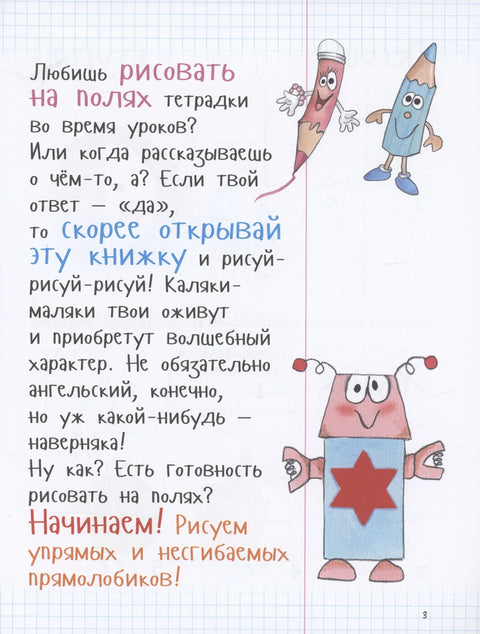 Любишь рисовать
на полях тетрадки
во время уроков?
Или когда рассказываешь
о чём-то, а? Если твой
ответ — «да»,
то скорее открывай
эту книжку и рисуй-
рисуй-рисуй! Каляки-
маляки твои оживут
и приобретут волшебный
характер. Не обязательно
ангельский, конечно,
но уж какой-нибудь —
наверняка!
Ну как? Есть готовность
рисовать на полях?
Начинаем! Рисуем
упрямых и несгибаемых
прямолобиков!
3